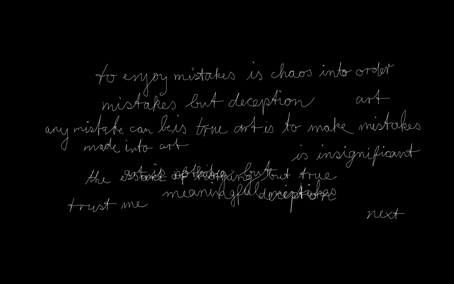 to enjoy mistakes is chaos into order
mistakes but deception art
any mistake can be is true art is to make mistakes
made into art is insignificant
the but true
meaningful
trust me
next